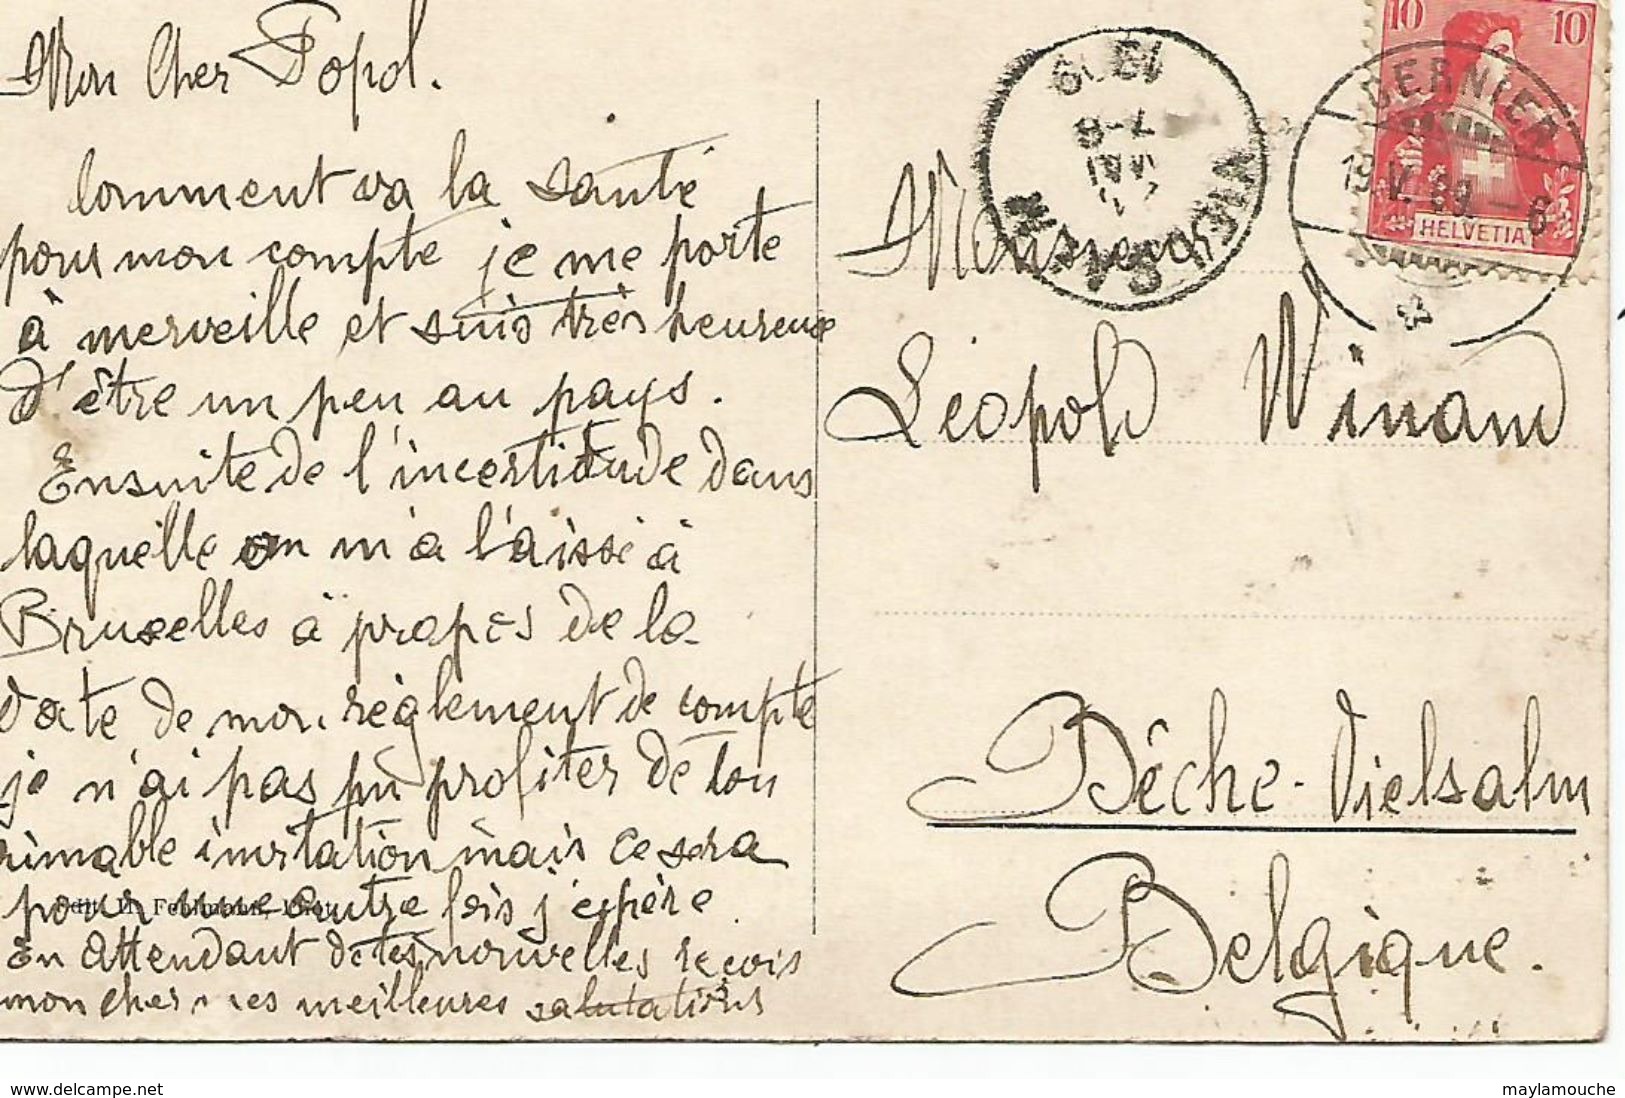 Mon Cher Popol.
Comment va la santé
pour mon compte je me porte
à merveille et suis très heureux
d'être un peu au pays.
Ensuite de l'incertitude dans
laquelle on m'a laissé à
Bruxelles à propos de la
date de mon règlement de compte
je n'ai pas pu profiter de ton
aimable invitation mais ce sera
pour une autre fois j'espère
En attendant de tes nouvelles reçois
mon cher mes meilleures salutations
Edit. H.
1909
7-8
MAI
VIELSALM
10 10
HELVETIA
CERNIER
19.V.09.-6
Monsieur
Léopold Winand
Bêche-Vielsalm
Belgique.
www.delcampe.net
maylamouche